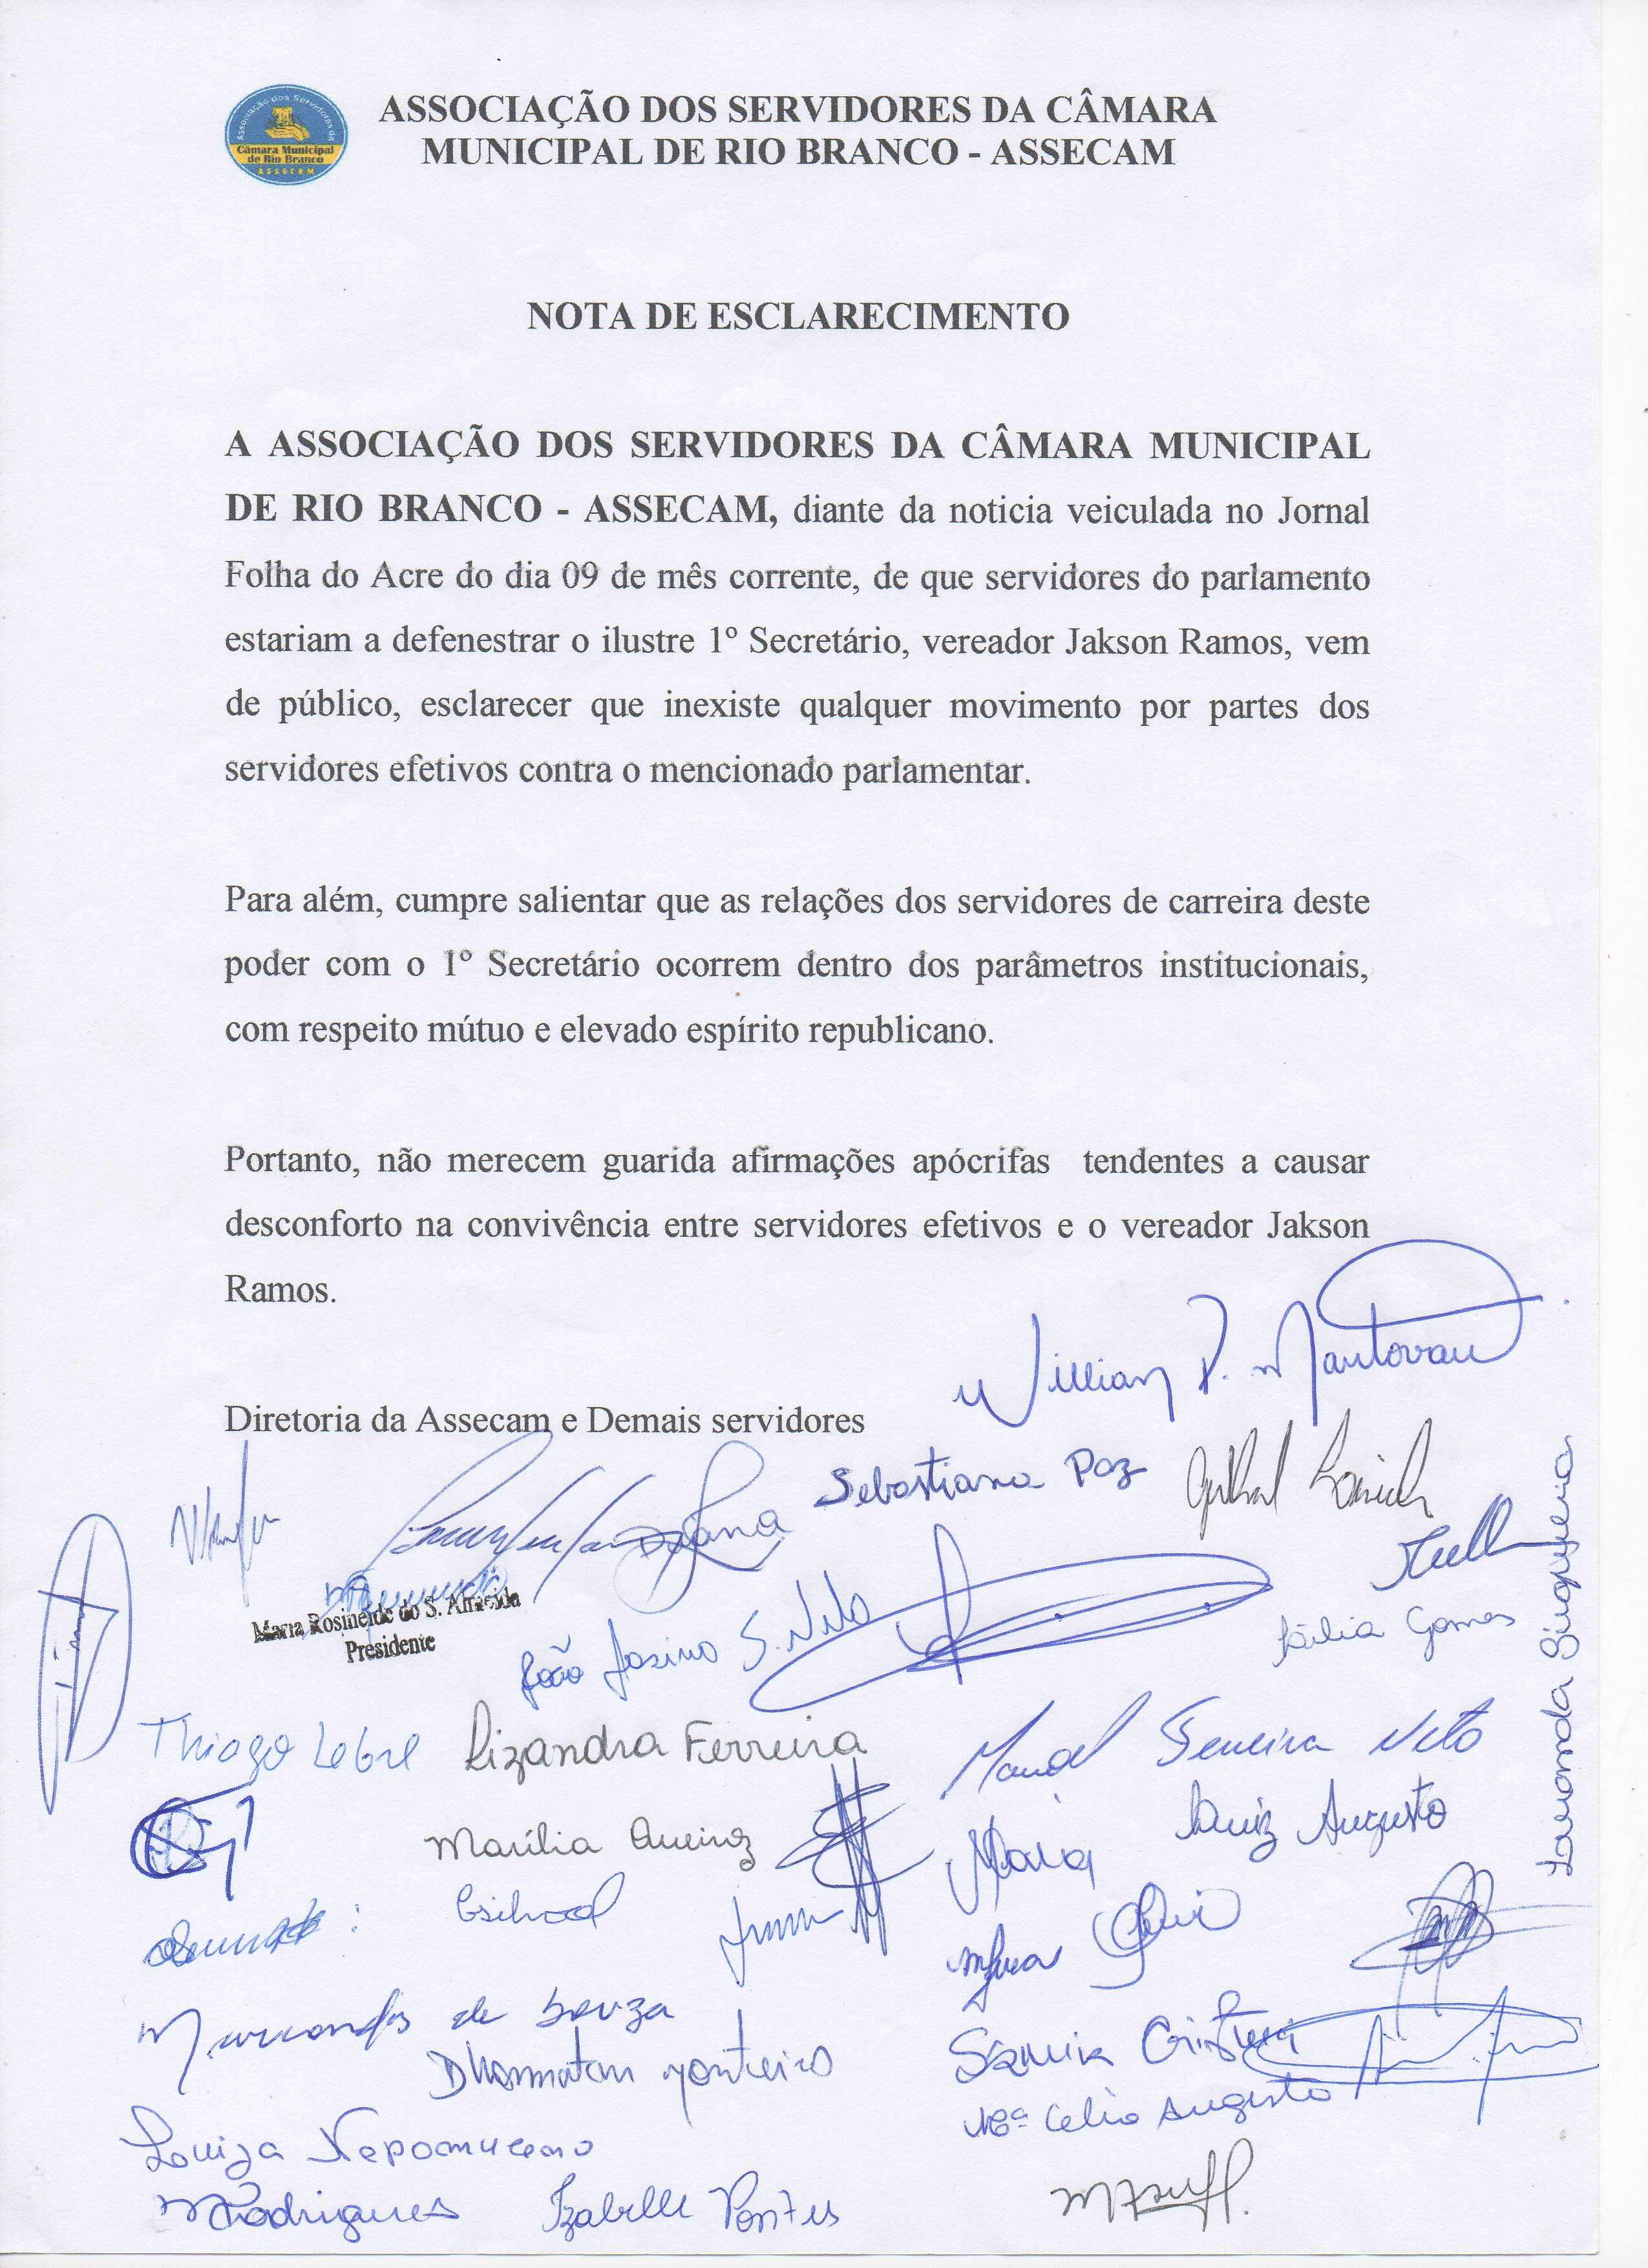 Associação dos Servidores da
Câmara Municipal
de Rio Branco
ASSECAM
ASSOCIAÇÃO DOS SERVIDORES DA CÂMARA
MUNICIPAL DE RIO BRANCO - ASSECAM
NOTA DE ESCLARECIMENTO
A ASSOCIAÇÃO DOS SERVIDORES DA CÂMARA MUNICIPAL
DE RIO BRANCO - ASSECAM, diante da noticia veiculada no Jornal
Folha do Acre do dia 09 de mês corrente, de que servidores do parlamento
estariam a defenestrar o ilustre 1º Secretário, vereador Jakson Ramos, vem
de público, esclarecer que inexiste qualquer movimento por partes dos
servidores efetivos contra o mencionado parlamentar.
Para além, cumpre salientar que as relações dos servidores de carreira deste
poder com o 1º Secretário ocorrem dentro dos parâmetros institucionais,
com respeito mútuo e elevado espírito republicano.
Portanto, não merecem guarida afirmações apócrifas tendentes a causar
desconforto na convivência entre servidores efetivos e o vereador Jakson
Ramos.
Diretoria da Assecam e Demais servidores
Willian P. Mantovani
Sebastiana Paz
Maria Rosineide do S. Almeida
Presidente
João Josino S. Neto
Gomes
Thiago Lebre
Lizandra Ferreira
Neto
Marília Queiroz
Maria
Luiz Augusto
de Souza
Monteiro
Nepomuceno
Augusto
Rodrigues
Izabelle Pontes